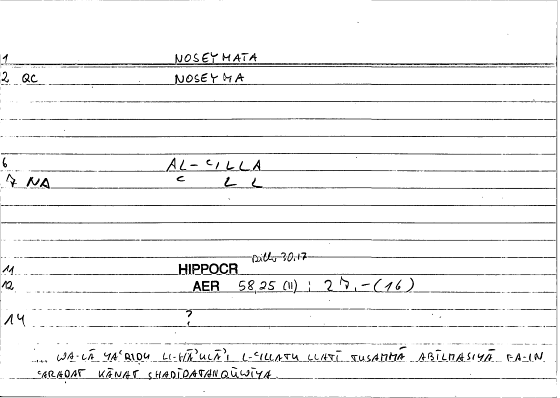 1 NOSEYMATA
2 QC NOSEYMA
6 AL-ʿILLA
7 NA ʿ L L
30,17
11 HIPPOCR
12 AER 58,25 (11) ; 27,-(16)
14 ?
... WA-LĀ YAʿRIDU LI-HĀʾULĀʾI L-ʿILLATU LLATĪ TUSAMMĀ ABĪLMASIYĀ FA-IN
ʿARADAT KĀNAT SHADĪDATAN QŪWĪYA